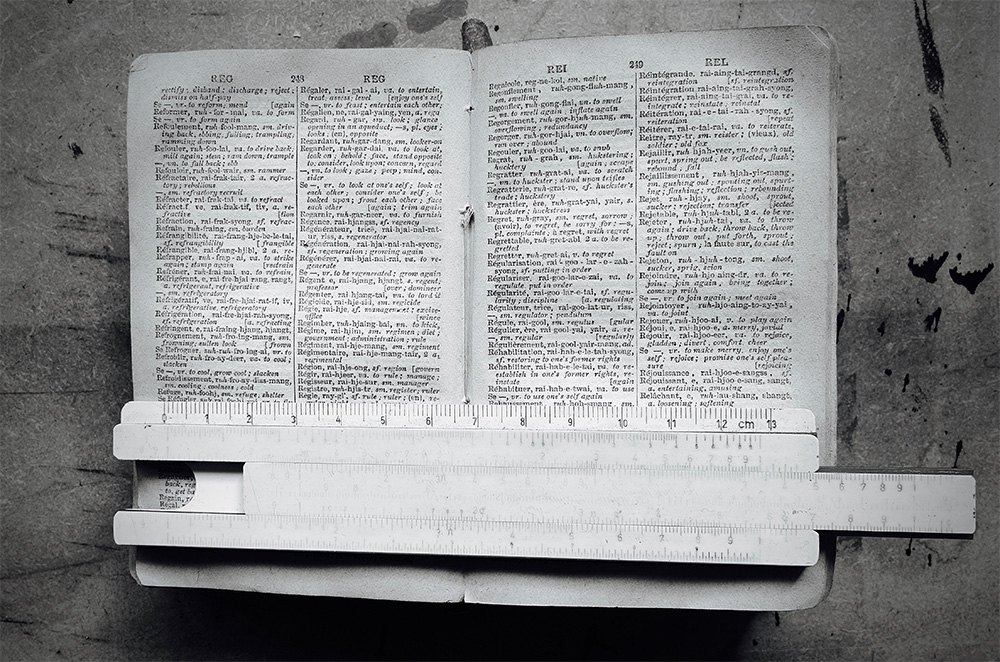 REG 248 REG
rectify; disband; discharge; reject;
dismiss on half-pay
Se —, vr. to reform, mend [again
Reformer, ruh-for-mai, va. to form
Se —, vr. to form again
Refoulement, ruh-fool-mang, sm. driv-
ing back, ebbing, falling; trampling;
ramming down
Refouler, ruh-foo-lai, va. to drive back,
mill again; stem; ram down, trample
— vn. to fall back; ebb
Refouloir, ruh-fool-war, sm. rammer
Réfractaire, rai-frak-tair, 2 a. refrac-
tory; rebellious
—, sm. refractory recruit
Réfracter, rai-frak-tai, va. to refract
fractive [tion
Réfraction, rai-frak-syong, sf. refrac-
Refrain, ruh-fraing, sm. burden
Réfrangibilité, rai-frang-hje-be-le-tai,
sf. refrangibility [frangible
Réfrangible, rai-frang-hjibl, 2 a. re-
Refrapper, ruh-frap-ai, va. to strike
again; stamp again [restrain
Refréner, ruh-frai-nai, va. to refrain,
Réfrigérant, e, rai-fre-hjai-rang, rangt,
a. refrigerant, refrigerative
—, sm. refrigeratory
Réfrigératif, ve, rai-fre-hjai-rat-if, iv,
a. refrigerative, refrigeratory
Réfrigération, rai-fre-hjai-rah-syong,
sf. refrigeration [a. refracting
Réfringent, e, rai-fraing-hjang, hjangt,
Refrognement, ruh-fro-ing-mang, sm.
frowning, sullen look [frown
Se Refrogner, uh ruh-fro-ing-ai, vr. to
Refroidir, ruh-fro-ay-deer, va. to cool;
slacken
Se —, vr. to cool, grow cool; slacken
Refroidissement, ruh-fro-ay-diss-mang,
sm. cooling; coolness; slackening
Refuge, ruh-foohj, sm. refuge, shelter
back, reg
to, get ba
Regain, r
Régal,
Régaler, rai-gal-ai, va. to entertain,
treat; assess; level [enjoy one's self
Se —, vr. to feast; entertain each other,
Régalien, ne, rai-gal-yaing, yen, a. rega
Regard, ruh-gar, sm. look; glance;
opening in an aqueduct; —s, pl. eyes;
looks; (en), opposite
Regardant, ruh-gar-dang, sm. looker-on
Regarder, ruh-gar-dai, va. to look at,
look on, behold; face, stand opposite
to; consider, look upon; concern, regard
—, vn. to look; gaze; peep; mind, con-
sider
Se —, vr. to look at one's self; look at
each other; consider one's self; be
looked upon; front each other; face
each other [again; trim again
Regarnir, ruh-gar-neer, va. to furnish
Régence, rai-hjangss, sf. regency
Régénérateur, trice, rai-hjai-nai-rat-
ur, riss, s. regenerator
Régénération, rai-hjai-nai-rah-syong,
sf. regeneration; growing again
Régénérer, rai-hjai-nai-rai, va. to re-
generate
Se —, vr. to be regenerated; grow again
Régent e, rai-hjang, hjangt, s. regent;
professor [over; domineer
Régenter, rai-hjang-tai, va. to lord it
Régicide, rai-hje-sid, sm. regicide
Régie, rai-hje, sf. management; excise-
office [wince
Regimber, ruh-hjaing-bai, vn. to kick,
Régime, rai-hjim, sm. regimen; diet;
government; administration; rule
Régiment, rai-hje-mang, sm. regiment
Régimentaire, rai-hje-mang-tair, 2 a.
regimental
Région, rai-hje-ong, sf. region [govern
Régir, rai-hjeer, va. to rule; manage;
Régisseur, rai-hje-sur, sm. manager
Registre, ruh-hjis-tr, sm. register; ruler
REI 249 REL
Regnicole, reg-ne-kol, sm. native
Regonflement, ruh-gong-fluh-mang,
sm. swelling
Regonfler, ruh-gong-flai, vn. to swell
— va. to swell again; inflate again
Regorgement, ruh-gor-hjuh-mang, sm.
overflowing; redundancy
Regorger, ruh-gor-hjai, vn. to overflow;
run over; abound
Regouler, ruh-goo-lai, va. to snub
Regrat, ruh-grah, sm. huckstering;
hucktery
Regratter, ruh-grat-ai, va. to scratch
— vn. to huckster; stand upon trifles
Regratterie, ruh-grat-re, sf. huckster's
trade; hucktery
Regrattier, ère, ruh-grat-yai, yair, s.
huckster; huckstress
Regret, ruh-gray, sm. regret, sorrow;
(avoir), to regret, be sorry for; —s,
pl. complaints; à regret, with regret
Regrettable, ruh-gret-abl 2 a. to be re-
gretted
Regretter, ruh-gret-ai, v. to regret
Régularisation, rai-goo-lar-e-zah-
syong, sf. putting in order
Régulariser, rai-goo-lar-e-zai, va. to
regulate, put in order
Régularité, rai-goo-lar-e-tai, sf. regu-
larity; discipline [a. regulating
Régulateur, trice, rai-goo-lat-ur, riss,
—, sm. regulator; pendulum
Régule, rai-gool, sm. regulus [gular
Régulier, ère, rai-gool-yai, yair, a. re-
—, sm. regular [regularly
Régulièrement, rai-gool-yair-mang, ad.
Réhabilitation, rai-hab-e-le-tah-syong,
sf. restoring to one's former rights
Réhabiliter, rai-hab-e-le-tai, va. to re-
establish in one's former rights, re-
instate [again
Réhabituer, rai-hab-e-twai, va. to use
Se —, vr. to use one's self again
Rehaussement, ruh-hohss-mang, sm.
Réintégrande, rai-aing-tai-grangd, sf.
reintegration [sf. reintegration
Réintégration rai-aing-tai-grah-syong,
Réintégrer, rai-aing-tai-grai, va. to re-
integrate; reinstate; reinstal
Réitération, rai-e-tai-rah-syong, sf.
reiteration [repeat
Réitérer, rai-e-tai-rai, va. to reiterate,
Reitre, ray-tr, sm. reister; (vieux), old
soldier; old fox
Rejaillir, ruh-hjah-yeer, vn. to gush out,
spurt, spring out; be reflected, flash;
rebound; fall
Rejaillissement, ruh-hjah-yis-mang,
sm. gushing out; spouting out, spurt-
ing out; reflection; rebounding
Rejet, ruh-hjay, sm. shoot, sprout,
sucker; rejection; transfer [jected
Rejetable, ruh-hjuh-tabl, 2 a. to be re-
Rejeter, ruh-hjuh-tai, va. to throw
again; drive back, throw back, throw
up; throw out, put forth, sprout;
reject; spurn; la faute sur, to cast the
fault on
Rejeton, ruh-hjuh-tong, sm. shoot,
sucker, sprig, scion
Rejoindre, ruh-hjo-aing-dr, va. to re-
join; join again, bring together;
come up with
Se —, vr. to join again; meet again
Rejointoyer, ruh-hjo-aing-to-ay-yai,
va. to joint
Rejouer, ruh-hjoo-ai, v. to play again
Réjoui, e, rai-hjoo-e, a. merry, jovial
Réjouir, rai-hjoo-eer, va. to rejoice,
gladden; divert, comfort, cheer
Se —, vr. to make merry, enjoy one's
self; rejoice; promise one's self plea-
sure [rejoicing
Réjouissance, rai-hjoo-e-sangss, sf.
Réjouissant, e, rai-hjoo-e-sang, sangt,
a. entertaining, amusing
Relâchant, e, ruh-lau-shang, shangt,
a. loosening; softening
0 1 2 3 4 5 6 7 8 9 10 11 12 cm 13